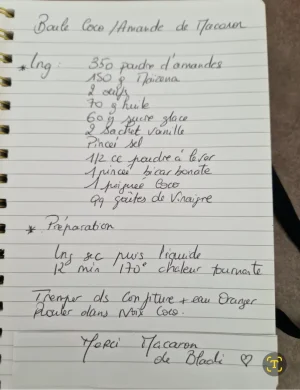 Boule Coco / Amande de Macaron
* Ing : 350 poudre d'amandes
150 g Maizena
2 oeufs
70 g huile
60 g sucre glace
2 sachet vanille
Pincée sel
1/2 cc poudre à lever
1 pincée bicarbonate
1 poignée Coco
qq goûtes de Vinaigre
* Préparation
Ing sec puis liquide
12 min 170° chaleur tournante
Tremper ds Confiture + eau Oranger
Rouler dans Noix Coco.
Merci Macaron
de Bladi ♡